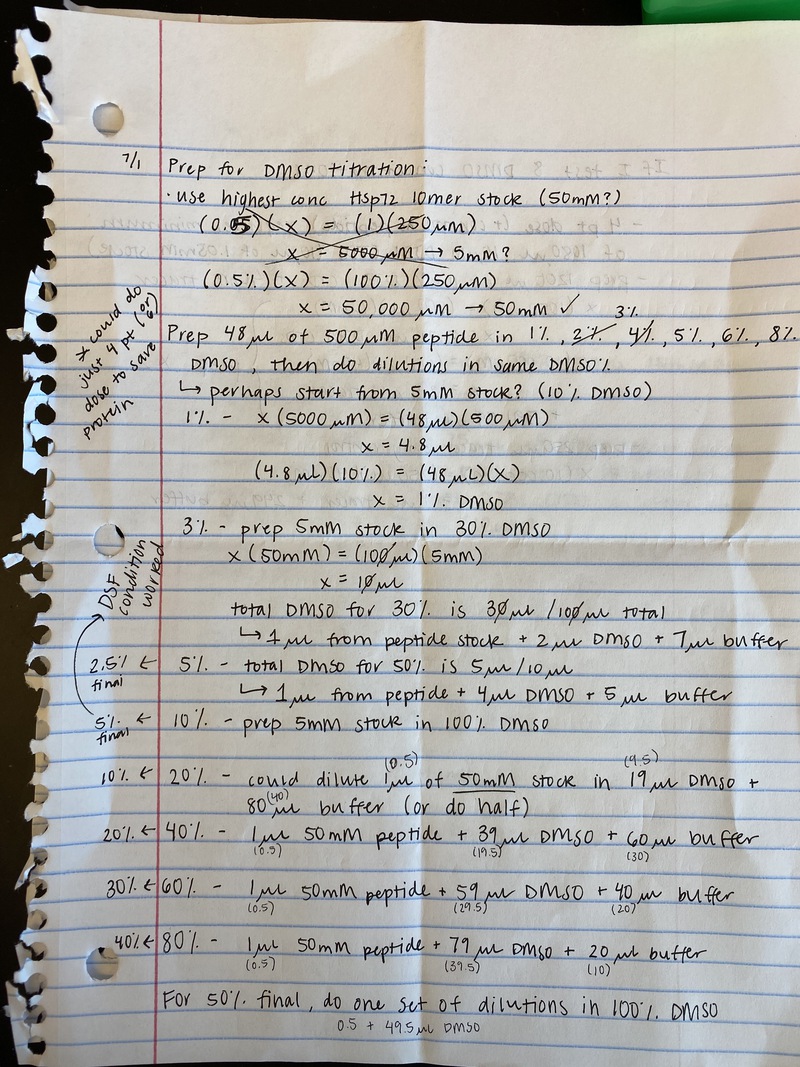 7/1 Prep for DMSO titration:
· use highest conc Hsp72 10mer stock (50mM?)
(0.05)(x) = (1)(250 μM)
x = 5000 μM → 5mM?
(0.5%)(x) = (100%)(250 μM)
x = 50,000 μM → 50mM ✓
3%
Prep 48 μl of 500 μM peptide in 1%, 2%, 4%, 5%, 6%, 8%
DMSO, then do dilutions in same DMSO%
↳ perhaps start from 5mM stock? (10% DMSO)
* could do
just 4 pt (or 6)
dose to save
protein
1% - x (5000 μM) = (48 μl)(500 μM)
x = 4.8 μl
(4.8 μL)(10%) = (48 μL)(x)
x = 1% DMSO
3% - prep 5mM stock in 30% DMSO
x (50mM) = (100 μl)(5mM)
x = 10 μl
total DMSO for 30% is 30 μl / 100 μl total
↳ 1 μl from peptide stock + 2 μl DMSO + 7 μl buffer
DSF
condition
worked
2.5% final ← 5% - total DMSO for 50% is 5 μl / 10 μl
↳ 1 μl from peptide + 4 μl DMSO + 5 μl buffer
5% final ← 10% - prep 5mM stock in 100% DMSO
(0.5) (9.5)
10% ← 20% - could dilute 1 μl of 50mM stock in 19 μl DMSO +
(40)
80 μl buffer (or do half)
20% ← 40% - 1 μl 50mM peptide + 39 μl DMSO + 60 μl buffer
(0.5) (19.5) (30)
30% ← 60% - 1 μl 50mM peptide + 59 μl DMSO + 40 μl buffer
(0.5) (29.5) (20)
40% ← 80% - 1 μl 50mM peptide + 79 μl DMSO + 20 μl buffer
(0.5) (39.5) (10)
For 50% final, do one set of dilutions in 100% DMSO
0.5 + 49.5 μl DMSO